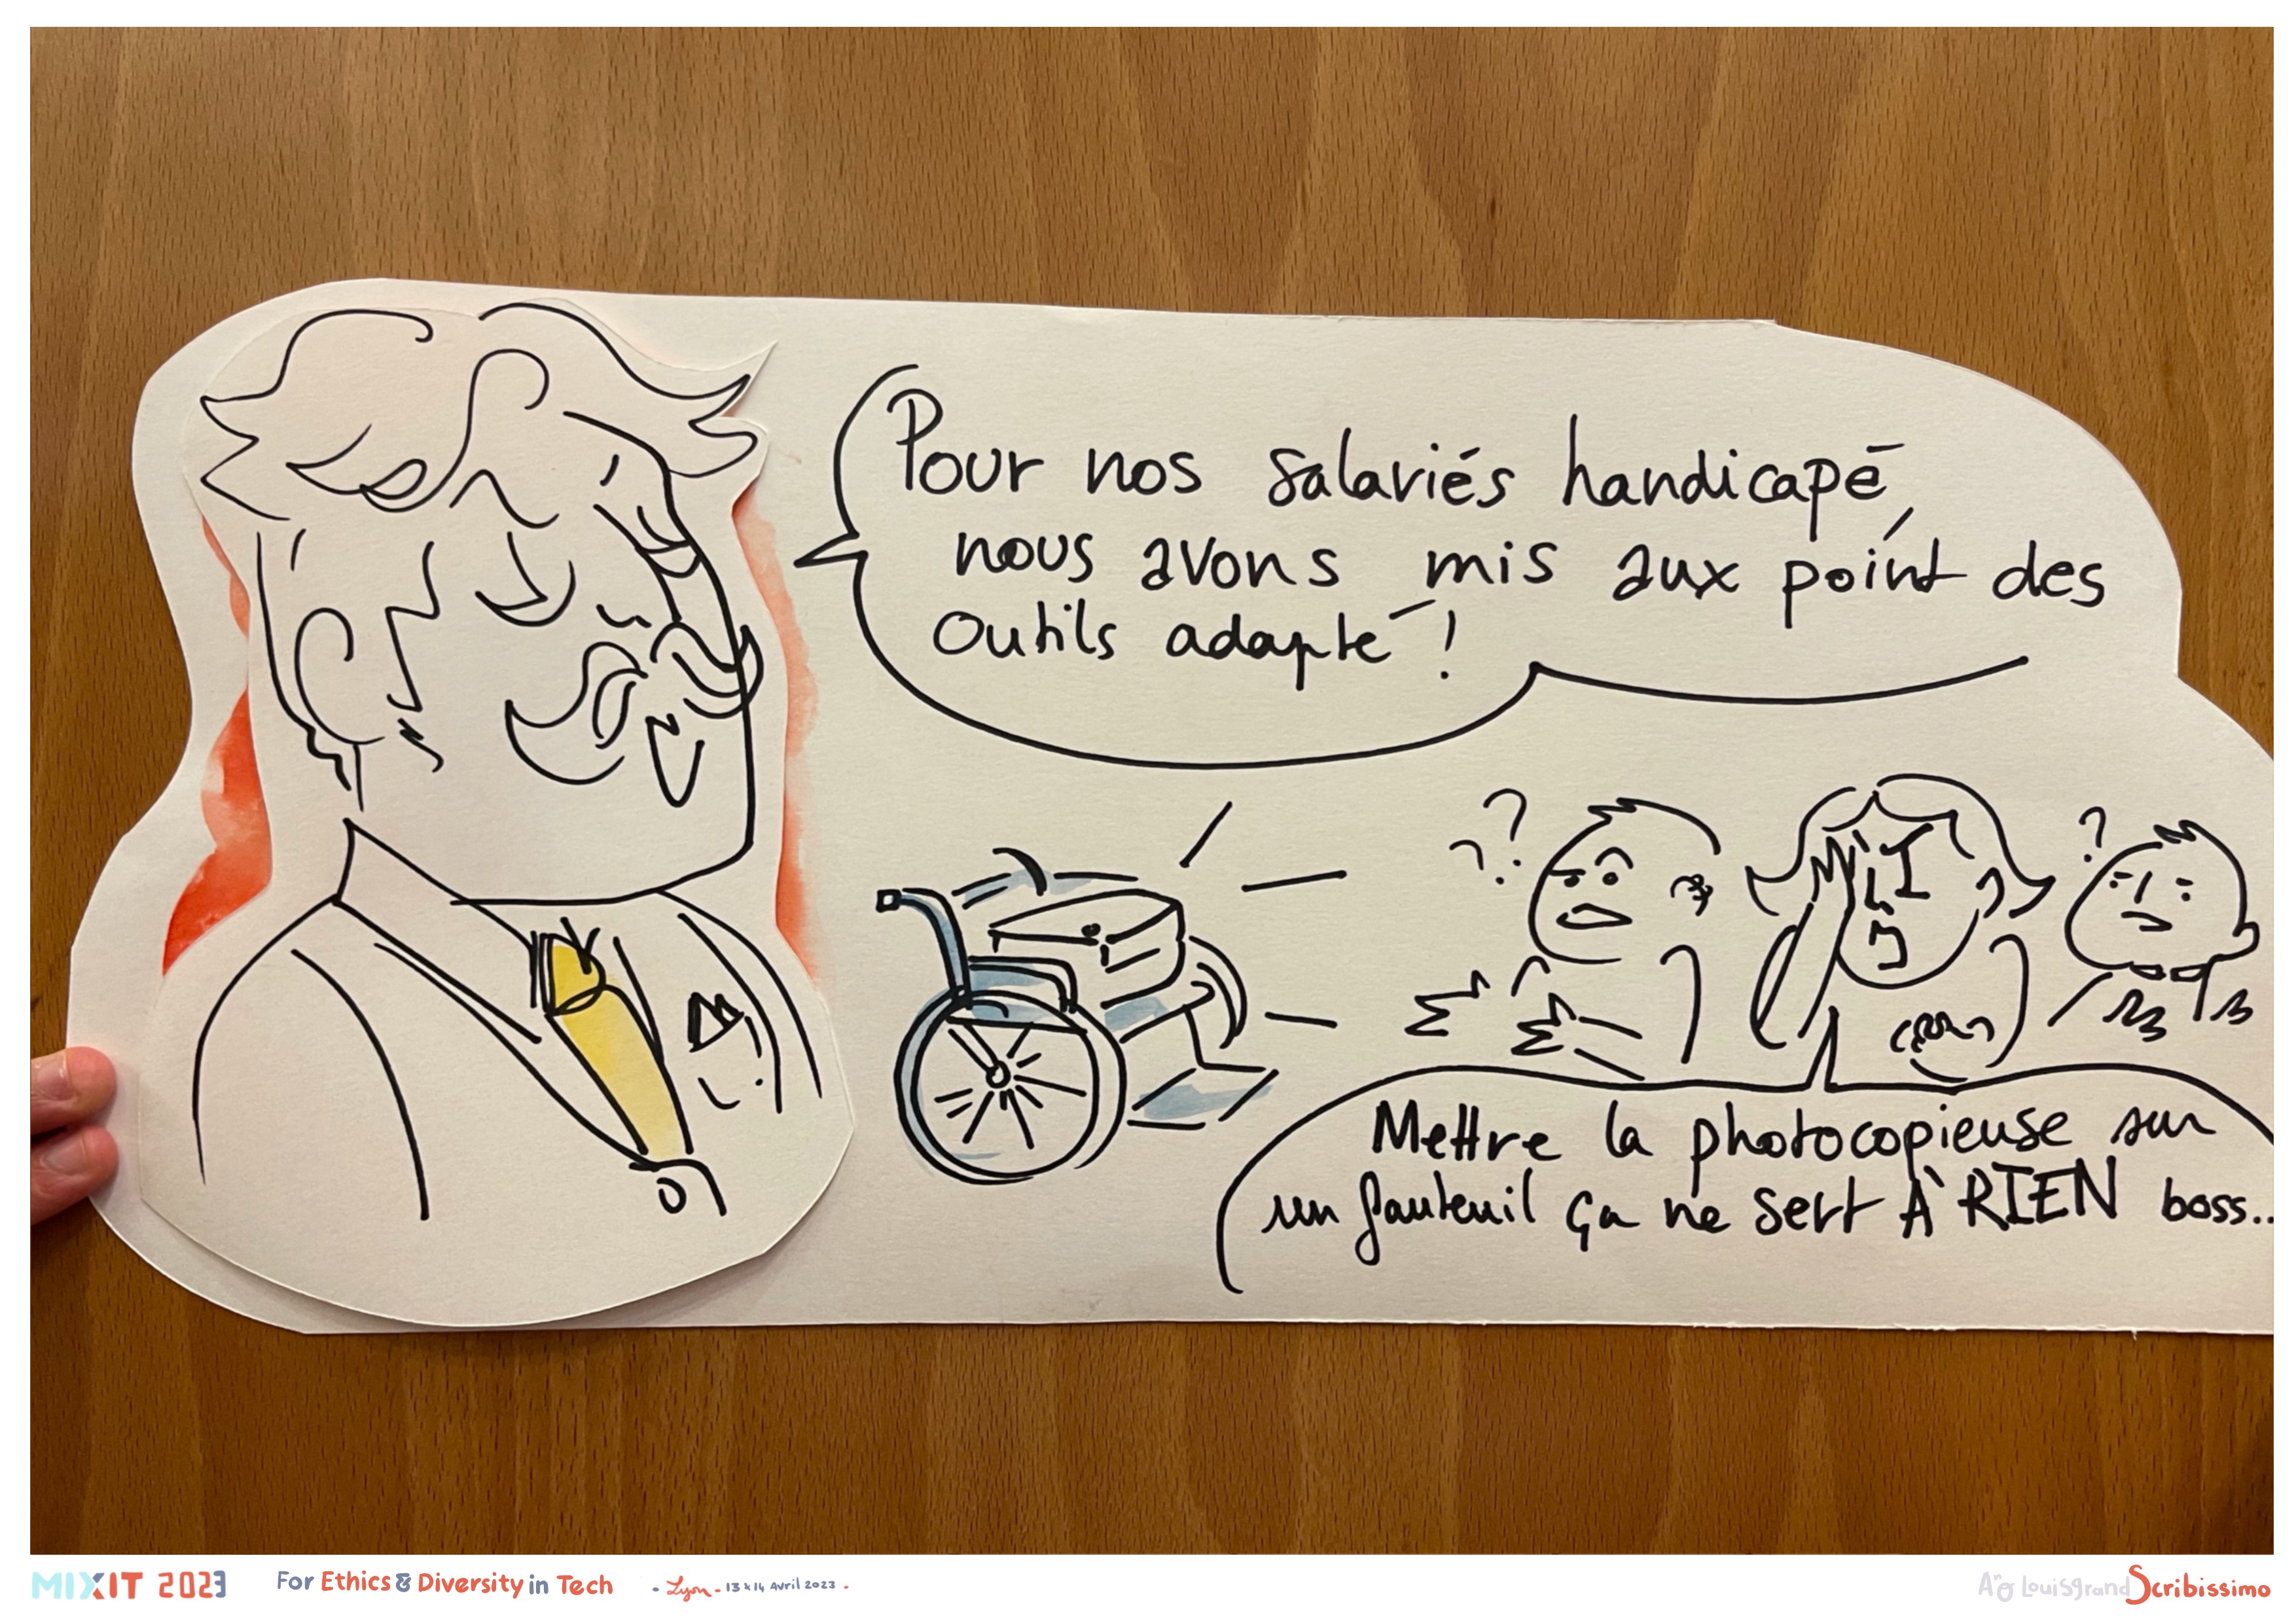 Pour nos salariés handicapé
nous avons mis aux point des
outils adapté !
? ?
?
Mettre la photocopieuse sur
un fauteuil ça ne sert À RIEN boss..
MIXIT 2023
For Ethics & Diversity in Tech
- Lyon - 13 & 14 Avril 2023 -
Louisgrand Scribissimo